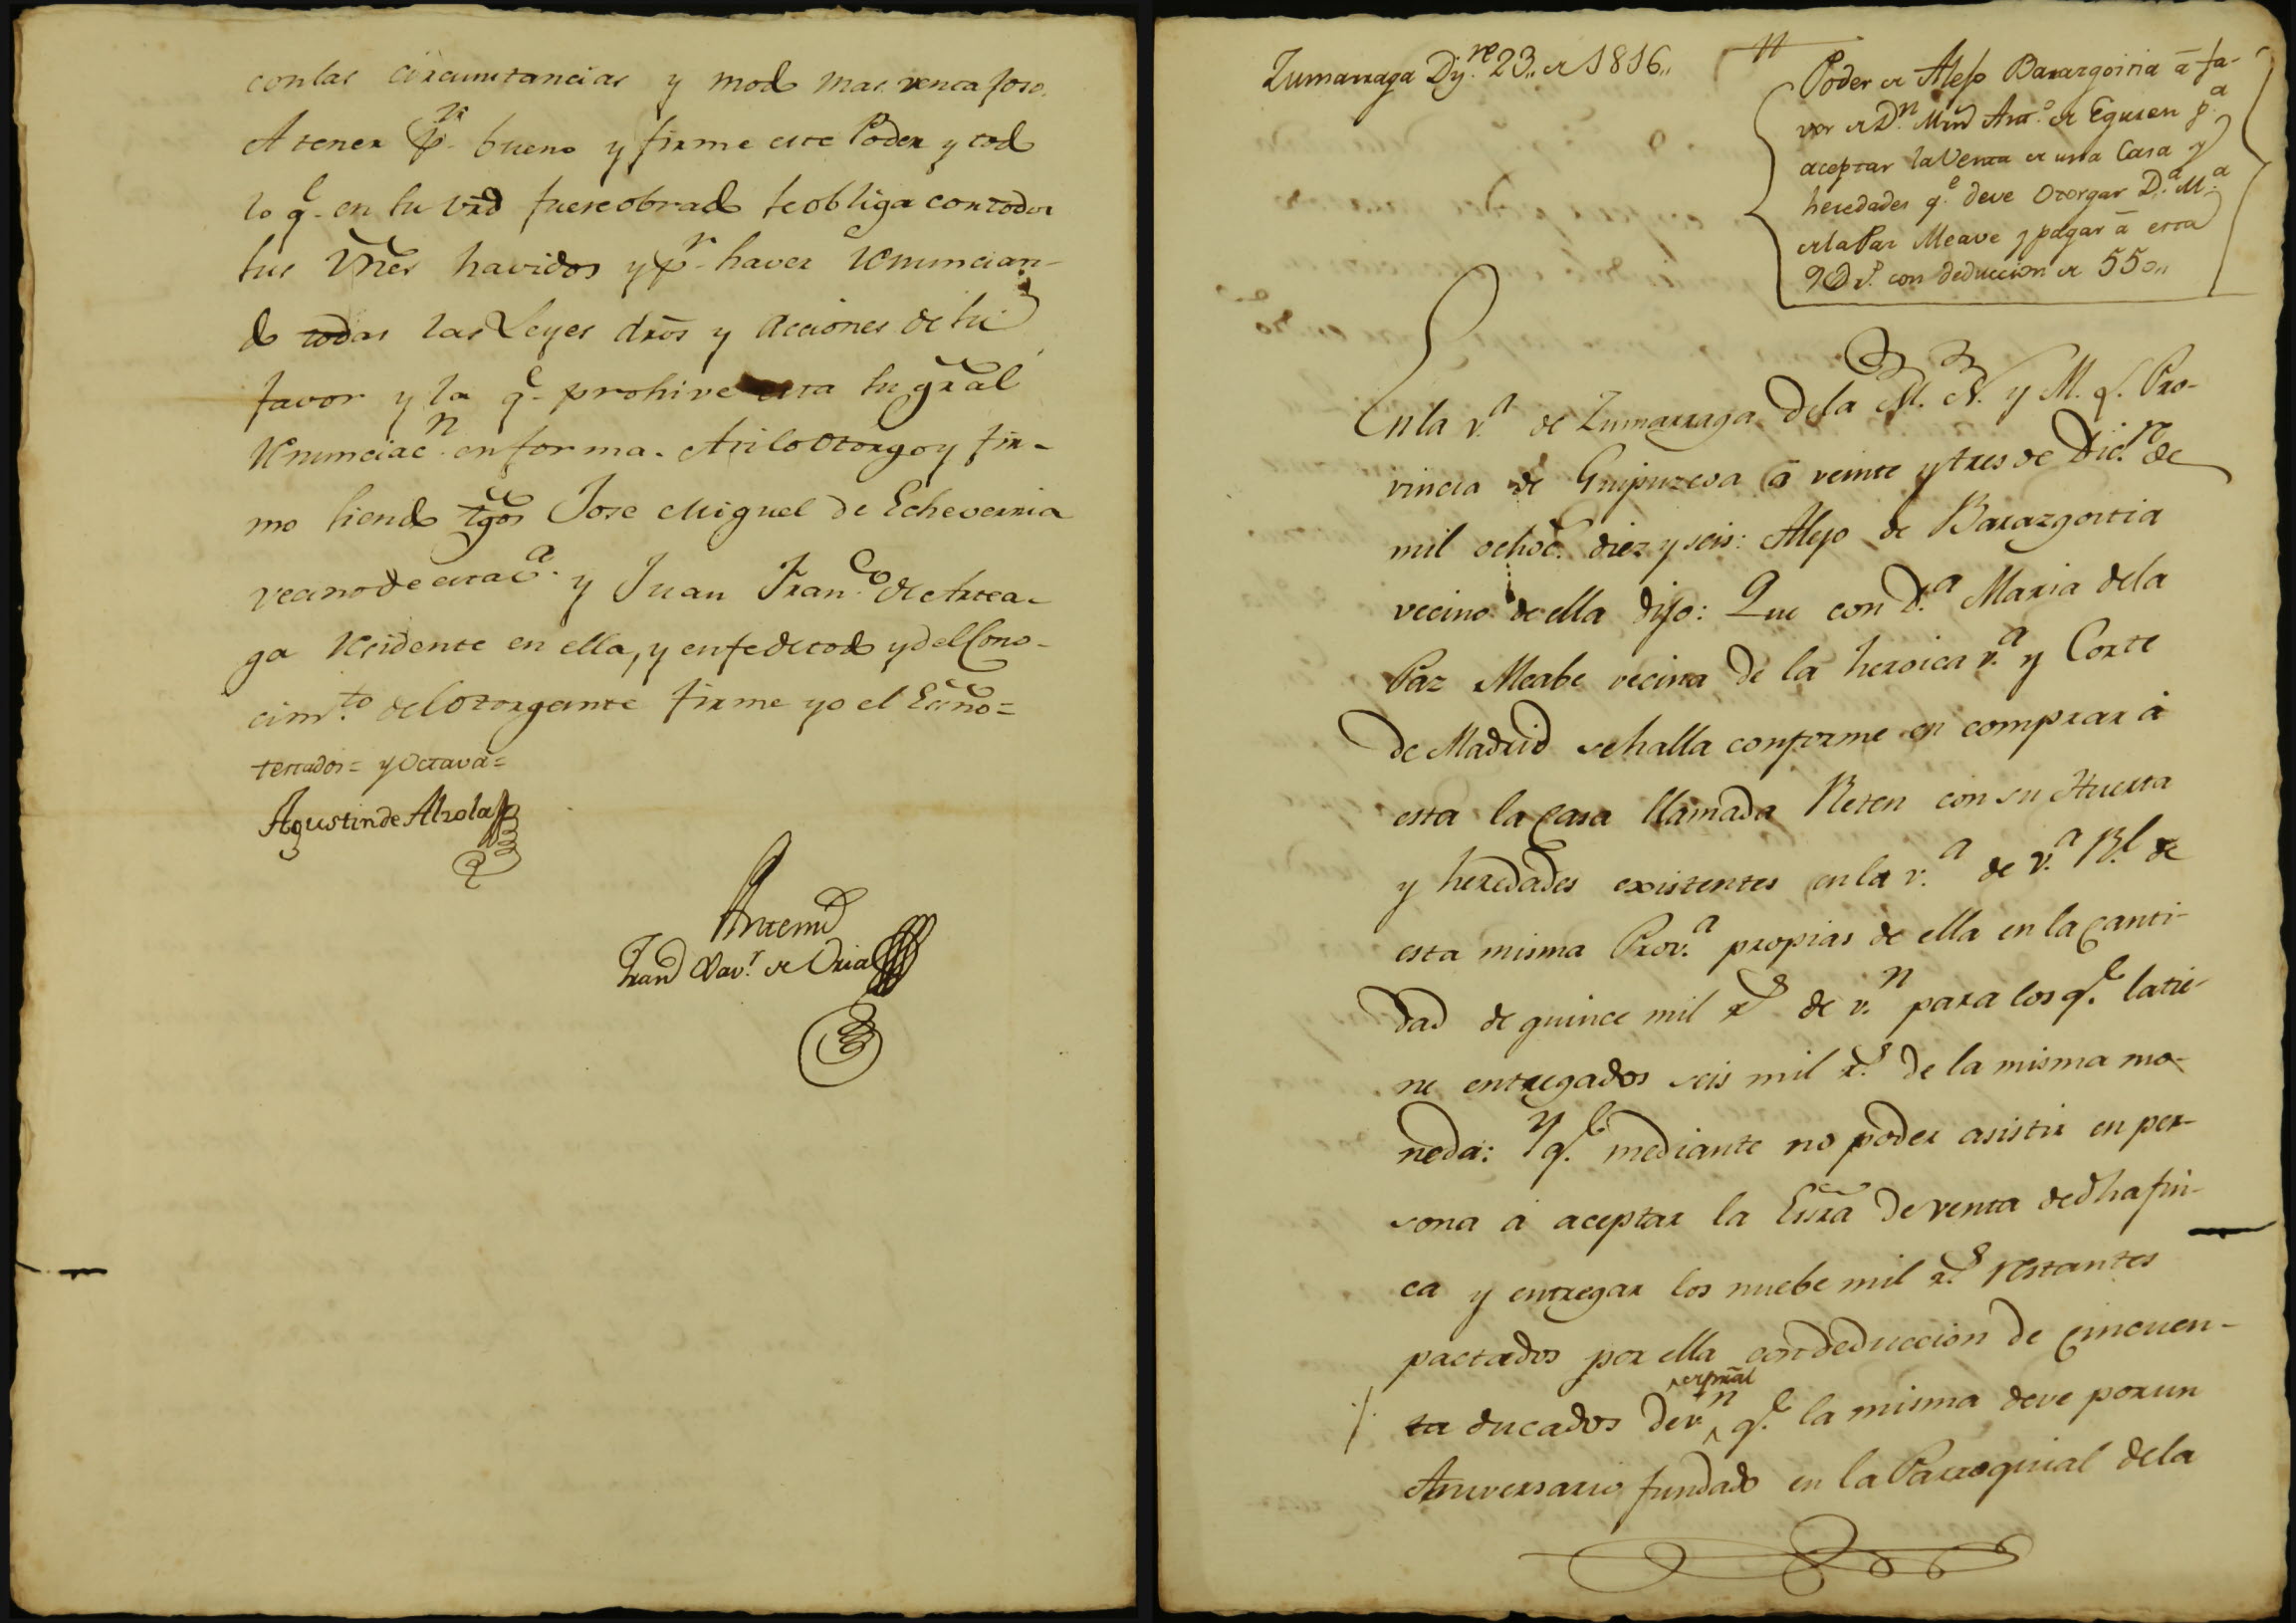 con las circunstancias y modo mas ventajoso.
A tener pr. bueno y firme este Poder y todo
lo qe. en su vrd fuere obrado se obliga con todos
sus Vnes havidos y pr. haver renuncian-
do todas las Leyes dros y acciones de su
favor y la qe. prohive esta su gral
renunciacn. en forma. Asi lo otorgo y fir-
mo siendo tgos Jose Miguel de Echeverria
vecino de esta va. y Juan Franco. de Artea-
ga residente en ella, y en fe de todo y del Cono-
cimto. del Otorgante firme yo el Esno=
testados= y Octava=
Agustin de Alzola
Antemi
Franco Xavr. de Oria
Zumarraga Dizre. 23,, de 1816,,
Poder de Alejo Barazgoitia á fa-
vor de Dn. Mrn Anto. de Eguren pa.
aceptar la Venta de una Casa y
heredades qe. deve Otorgar Da. Ma.
de la Paz Meave y pagar á esta
9@ rs. con deduccion de 550,,
En la va. de Zumarraga de la M. N. y M. L. Pro-
vincia de Guipuzcoa á veinte y tres de Dicre. de
mil ochoc. diez y seis: Alejo de Barazgoitia
vecino de ella dijo: Que con Da. Maria de la
Paz Meabe vecina de la heroica va. y Corte
de Madrid se halla conforme en comprar á
esta la Casa llamada Reten con su Huerta
y heredades existentes en la va. de Va. Rl. de
esta misma Prova. propias de ella en la canti-
dad de quince mil rs de vn. para los qe. la tie-
ne entregados seis mil rs. de la misma mo-
neda: Y qe. mediante no poder asistir en per-
sona á aceptar la Essra de venta de dha fin-
ca y entregar los nuebe mil rs. restantes
pactados por ella con deduccion de cincuen-
de pral
ta ducados de vn. qe. la misma deve por un
Aniversario fundado en la Parroquial de la